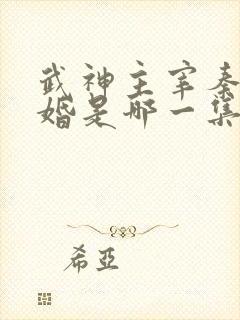 武神主宰秦
婚是哪一集
希亞